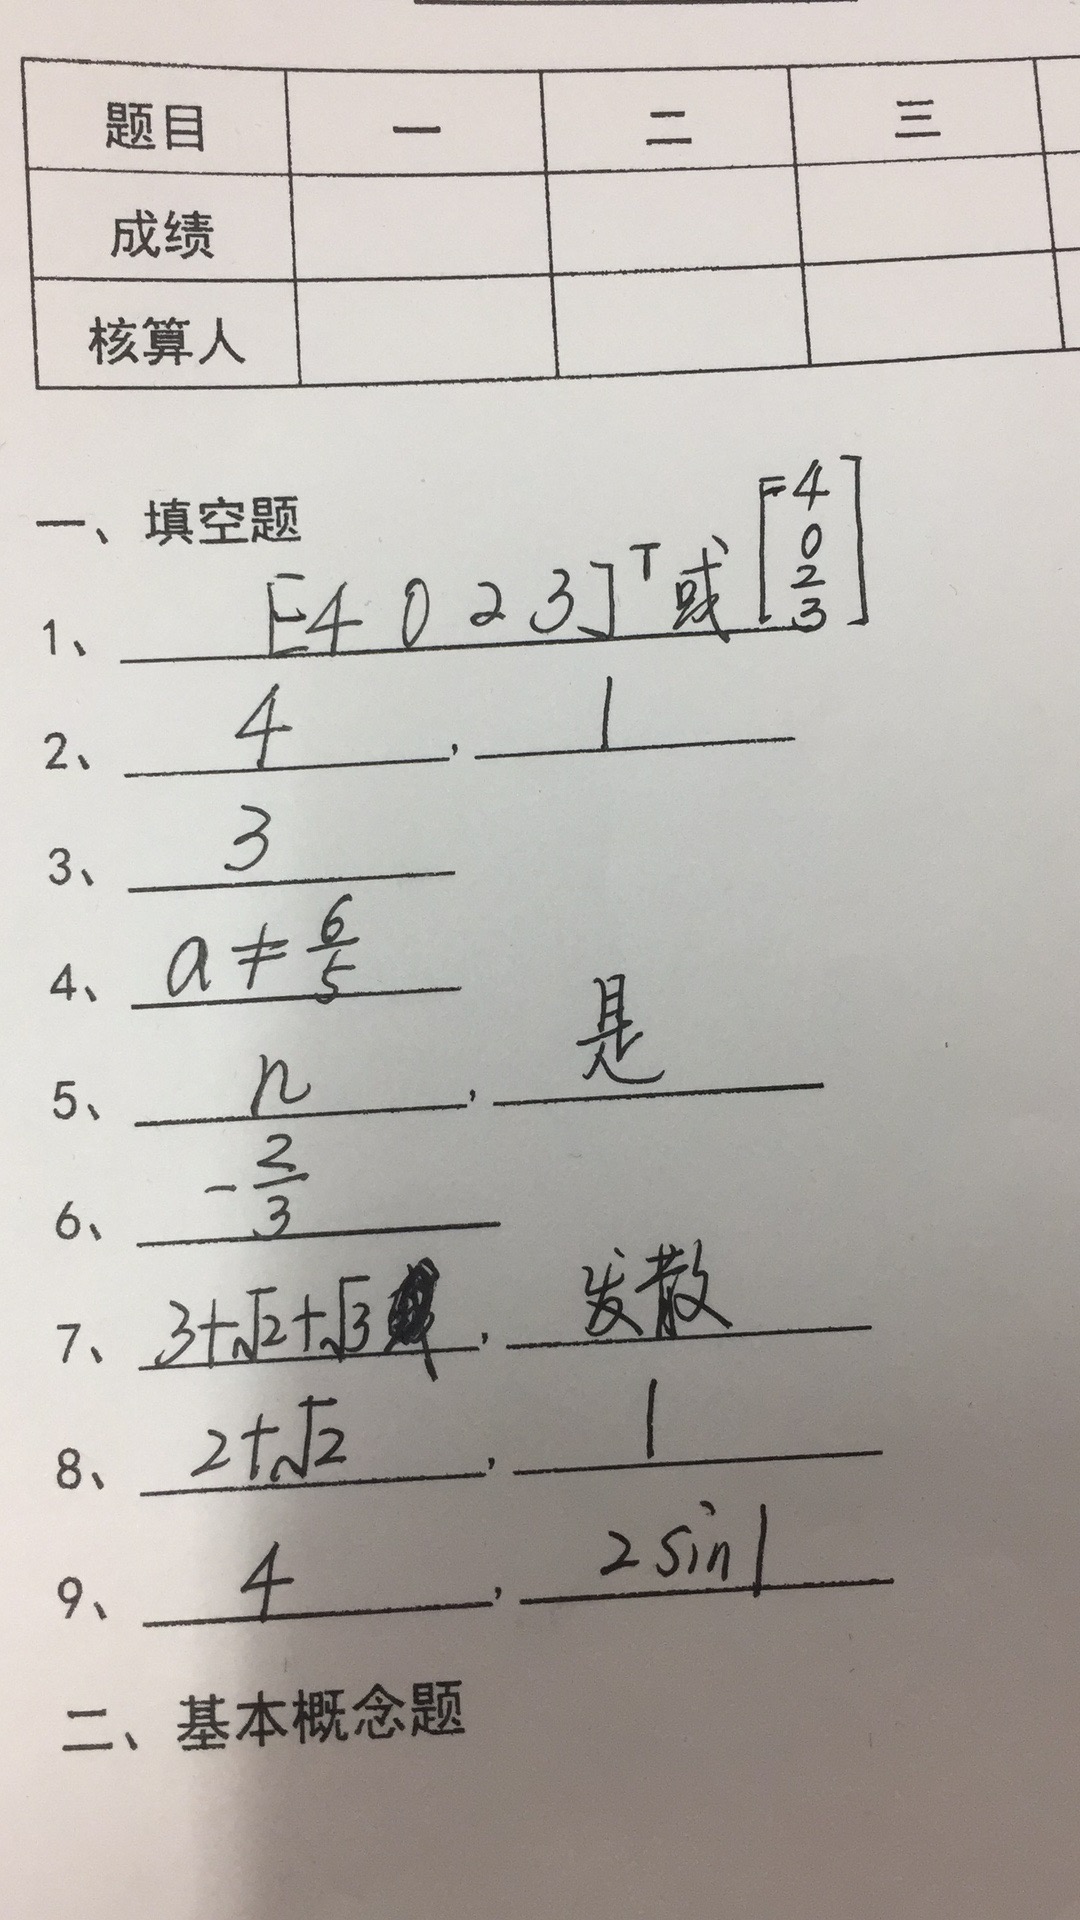 题目 一 二 三
成绩
核算人
一、填空题
1、 [-4 0 2 3]ᵀ 或 [-4 0 2 3]
2、 4 , 1
3、 3
4、 a≠6/5
5、 n , 是
6、 -2/3
7、 3+√2+√3 , 发散
8、 2+√2 , 1
9、 4 , 2sin1
二、基本概念题